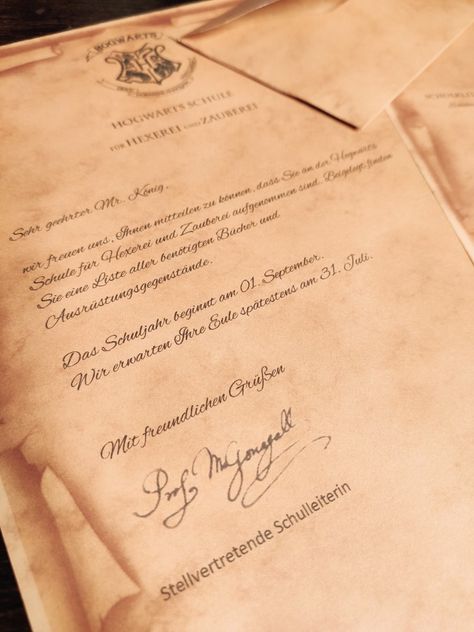 HOGWARTS
HOGWARTS SCHULE
FÜR HEXEREI UND ZAUBEREI
Sehr geehrter Mr. König,
wir freuen uns, Ihnen mitteilen zu können, dass Sie an der Hogwarts
Schule für Hexerei und Zauberei aufgenommen sind. Beigelegt finden
Sie eine Liste aller benötigten Bücher und
Ausrüstungsgegenstände.
Das Schuljahr beginnt am 01. September.
Wir erwarten Ihre Eule spätestens am 31. Juli.
Mit freundlichen Grüßen
Prof. McGonagall
Stellvertretende Schulleiterin